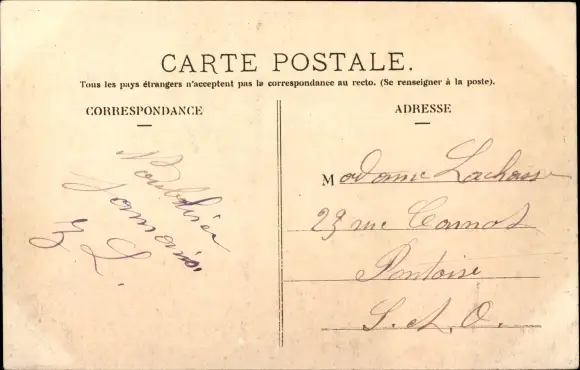 CARTE POSTALE.
Tous les pays étrangers n'acceptent pas la correspondance au recto. (Se renseigner à la poste).
CORRESPONDANCE
N'oubliez
Jamais
L.
ADRESSE
Madame Lachaise
29 rue Carnot
Pontoise
S. et O.